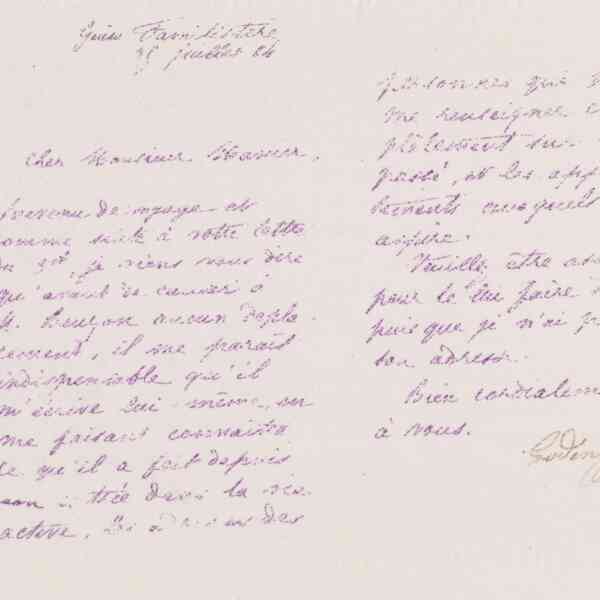 Guise Familistère
25 juillet 84
Cher Monsieur
revenu de voyage et
comme suite à votre lettre
du je viens vous dire
qu'avant de causer à
M. aucun dépla-
cement, il me paraît
indispensable qu'il
m'écrive lui-même, en
me faisant connaître
ce qu'il a fait depuis
son entrée dans la vie
active,
personnes que
me renseigner
plètement sur
passé, et les app
tements auxquels
aspire.
Veuillez être
pour le lui faire
puisque je n'ai
son adresse.
Bien cordialeme
à vous.
Godin